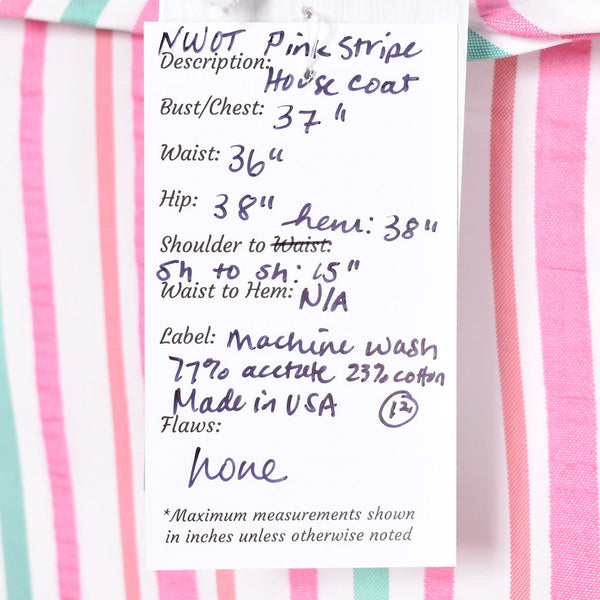 NWOT Pink Stripe
Description:
House coat
Bust/Chest: 37"
Waist: 36"
Hip: 38"
hem: 38"
Shoulder to Waist:
sh to sh: 15"
Waist to Hem: N/A
Label: Machine wash
77% acetate 23% cotton
Made in USA 12
Flaws:
none
*Maximum measurements shown
in inches unless otherwise noted